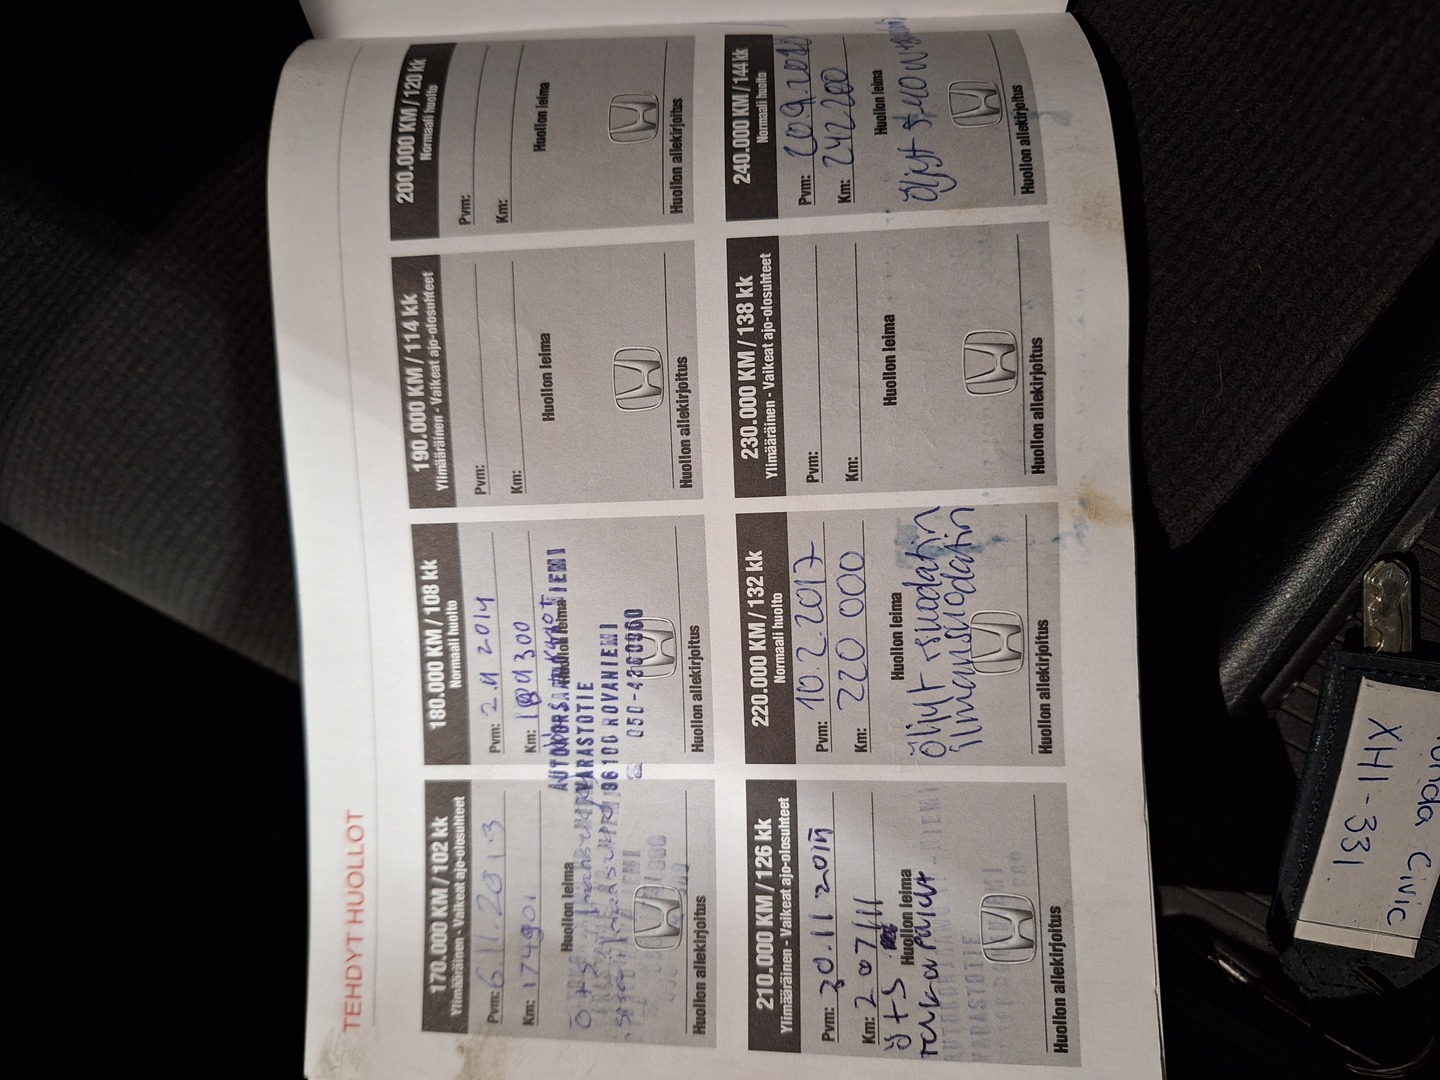 TEHDYT HUOLLOT
170.000 KM / 102 kk
Ylimääräinen - Vaikeat ajo-olosuhteet
Pvm: 6.11.2013
Km: 174901
Huollon leima
Huollon allekirjoitus
180.000 KM / 108 kk
Normaali huolto
Pvm: 2.9 2014
Km: 189 300
Huollon leima
VARASTOTIE
96100 ROVANIEMI
Huollon allekirjoitus
190.000 KM / 114 kk
Ylimääräinen - Vaikeat ajo-olosuhteet
Pvm:
Km:
Huollon leima
Huollon allekirjoitus
200.000 KM / 120 kk
Normaali huolto
Pvm:
Km:
Huollon leima
Huollon allekirjoitus
210.000 KM / 126 kk
Ylimääräinen - Vaikeat ajo-olosuhteet
Pvm: 30.11 2015
Km: 207111
Ö+S
Huollon leima
VARASTOTIE
Huollon allekirjoitus
220.000 KM / 132 kk
Normaali huolto
Pvm: 10.2.2017
Km: 220 000
Huollon leima
Öljyt + suodatin
ilmansuodatin
Huollon allekirjoitus
230.000 KM / 138 kk
Ylimääräinen - Vaikeat ajo-olosuhteet
Pvm:
Km:
Huollon leima
Huollon allekirjoitus
240.000 KM / 144 kk
Normaali huolto
Pvm: 20.9.2018
Km: 242200
Huollon leima
Öljyt 5-40W
Huollon allekirjoitus
Honda Civic
XHI-331